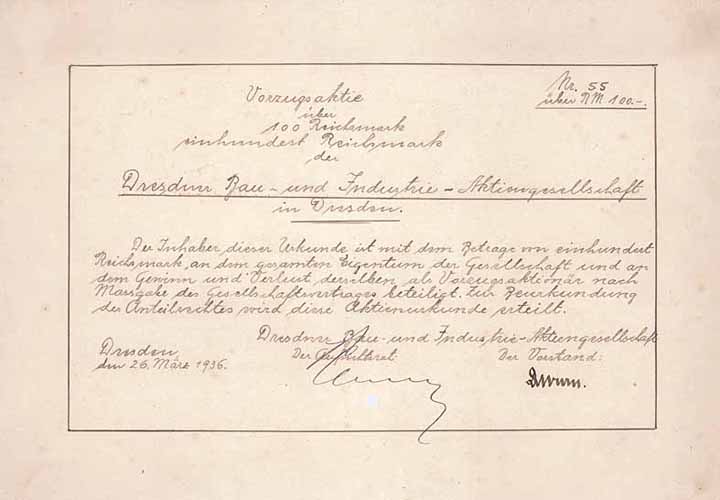 Nr. 55
über RM. 100.-.
Vorzugsaktie
über
100 Reichsmark
einhundert Reichsmark
der
Dresdner Bau- und Industrie-Aktiengesellschaft
in Dresden.
Der Inhaber dieser Urkunde ist mit dem Betrage von einhundert
Reichsmark an dem gesamten Eigentum der Gesellschaft und an
dem Gewinn und Verlust derselben als Vorzugsaktionär nach
Massgabe des Gesellschaftsvertrages beteiligt. Zur Beurkundung
des Anteilrechtes wird diese Aktienurkunde erteilt.
Dresdner Bau- und Industrie-Aktiengesellschaft
Dresden, Der Aufsichtsrat Der Vorstand:
den 26. März 1936.